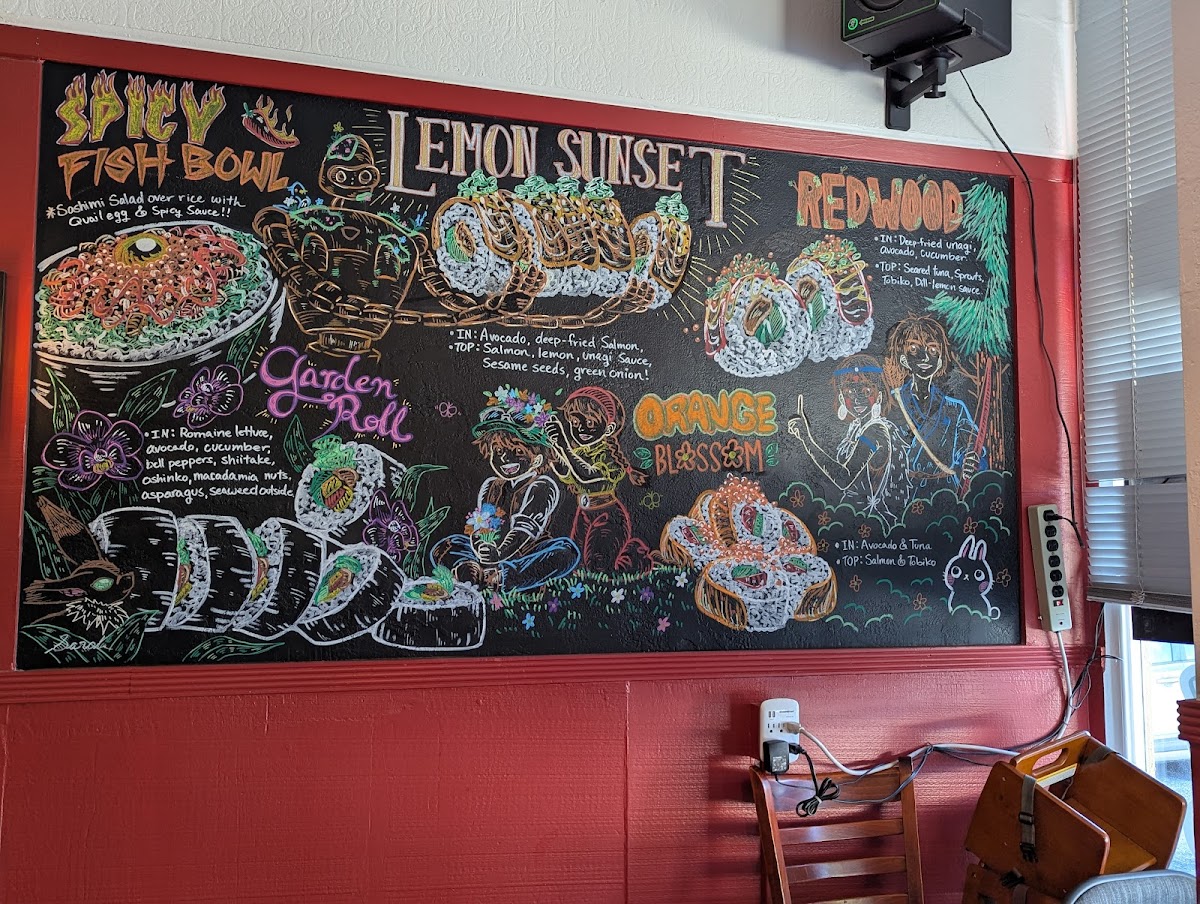 SPICY
FISH BOWL
*Sashimi Salad over rice with
Quail egg & Spicy Sauce!!
LEMON SUNSET
• IN: Avocado, deep-fried Salmon,
• TOP: Salmon, lemon, unagi Sauce,
Sesame seeds, green onion!
REDWOOD
• IN: Deep-fried unagi,
avocado, cucumber
• TOP: Seared tuna, Sprouts,
Tobiko, Dill-lemon sauce.
Garden
Roll
• IN: Romaine lettuce,
avocado, cucumber,
bell peppers, shiitake,
oshinko, macadamia nuts,
asparagus, seaweed outside
ORANGE
BLOSSOM
• IN: Avocado & Tuna
• TOP: Salmon & Tobiko